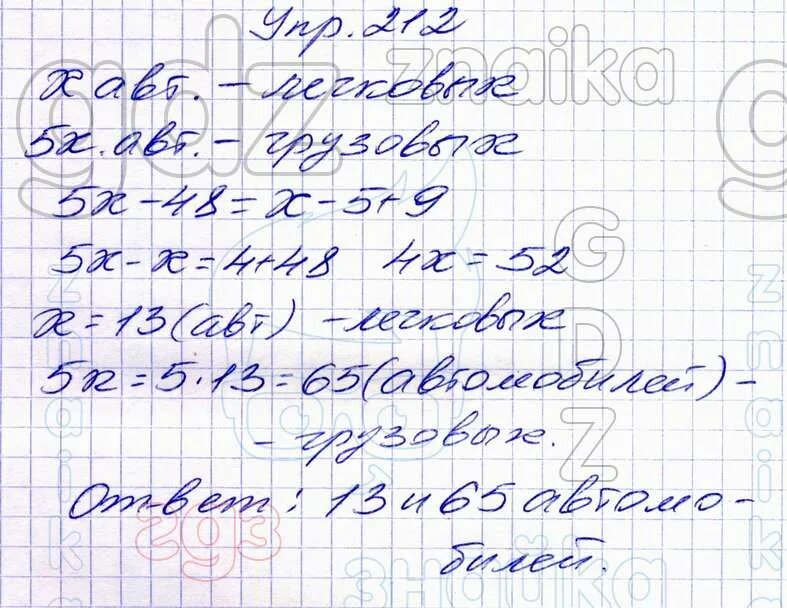 Упр. 212
x авт. – легковых
5x. авт. – грузовых
5x – 48 = x – 5 + 9
5x – x = 4 + 48 4x = 52
x = 13 (авт) – легковых
5x = 5 · 13 = 65 (автомобилей) –
– грузовых.
Ответ: 13 и 65 автомо-
билей.
gdz
znaika
g
GDZ
znaika
znaika
гдз
знайка